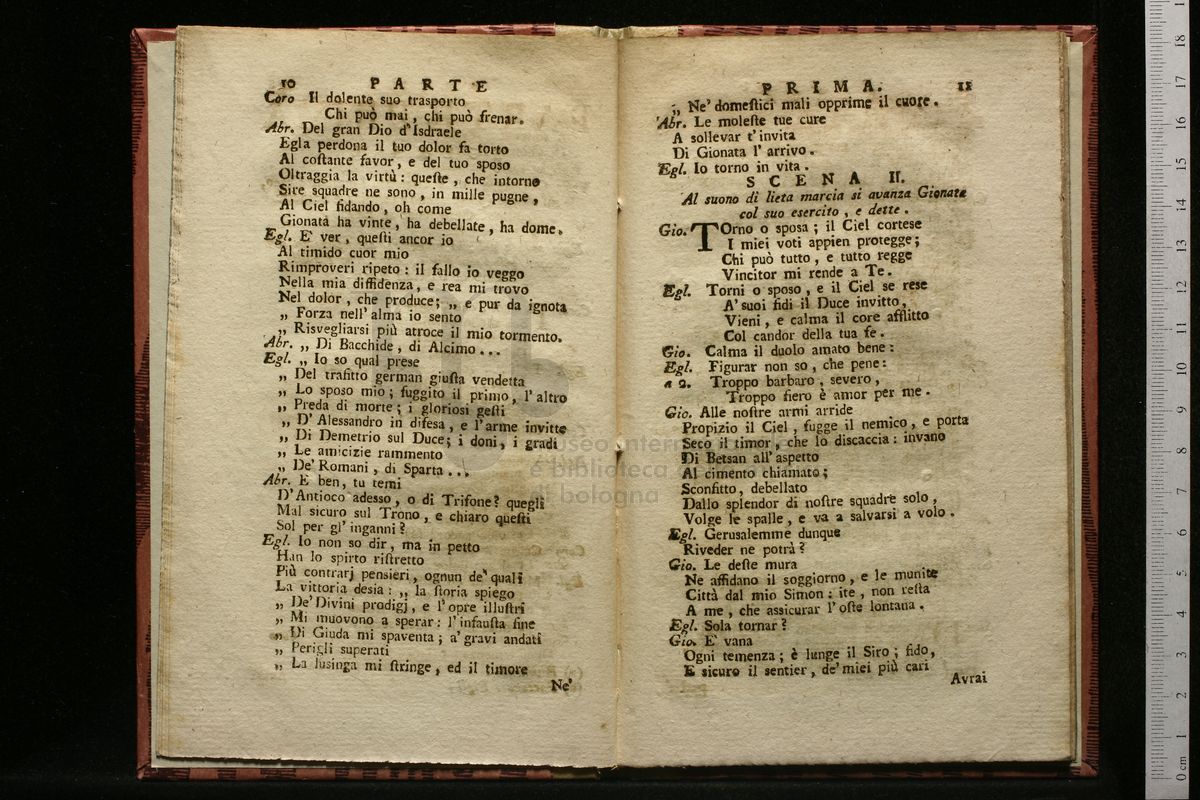 10 PARTE
Coro Il dolente suo trasporto
Chi può mai, chi può frenar.
Abr. Del gran Dio d'Isdraele
Egla perdona il tuo dolor fa torto
Al coſtante favor, e del tuo sposo
Oltraggia la virtù: queſte, che intorno
Sire squadre ne sono, in mille pugne,
Al Ciel fidando, oh come
Gionata ha vinte, ha debellate, ha dome.
Egl. E' ver, queſti ancor io
Al timido cuor mio
Rimproveri ripeto: il fallo io veggo
Nella mia diffidenza, e rea mi trovo
Nel dolor, che produce; „ e pur da ignota
„ Forza nell' alma io sento
„ Risvegliarsi più atroce il mio tormento.
Abr. „ Di Bacchide, di Alcimo...
Egl. „ Io so qual prese
„ Del trafitto german giuſta vendetta
„ Lo sposo mio; fuggito il primo, l'altro
„ Preda di morte; i gloriosi geſti
„ D'Alessandro in difesa, e l'arme invitte
„ Di Demetrio sul Duce; i doni, i gradi
„ Le amicizie rammento
„ De' Romani, di Sparta...
Abr. E ben, tu temi
D'Antioco adesso, o di Trifone? quegli
Mal sicuro sul Trono, e chiaro queſti
Sol per gl'inganni?
Egl. Io non so dir, ma in petto
Han lo spirto riſtretto
Più contrarj pensieri, ognun de' quali
La vittoria desia: „ la ſtoria spiego
„ De' Divini prodigj, e l'opre illuſtri
„ Mi muovono a sperar: l'infauſta fine
„ Di Giuda mi spaventa; a' gravi andati
„ Perigli superati
„ La lusinga mi ſtringe, ed il timore
Ne'
PRIMA. 11
„ Ne' domeſtici mali opprime il cuore.
Abr. Le moleſte tue cure
A sollevar t'invita
Di Gionata l' arrivo.
Egl. Io torno in vita.
SCENA II.
Al suono di lieta marcia si avanza Gionata
col suo esercito, e dette.
Gio. TOrno o sposa; il Ciel cortese
I miei voti appien protegge;
Chi può tutto, e tutto regge
Vincitor mi rende a Te.
Egl. Torni o sposo, e il Ciel se rese
A' suoi fidi il Duce invitto,
Vieni, e calma il core afflitto
Col candor della tua fe.
Gio. Calma il duolo amato bene:
Egl. Figurar non so, che pene:
a 2. Troppo barbaro, severo,
Troppo fiero è amor per me.
Gio. Alle noſtre armi arride
Propizio il Ciel, fugge il nemico, e porta
Seco il timor, che lo discaccia: invano
Di Betsan all' aspetto
Al cimento chiamato;
Sconfitto, debellato
Dallo splendor di noſtre squadre solo,
Volge le spalle, e va a salvarsi a volo.
Egl. Gerusalemme dunque
Riveder ne potrà?
Gio. Le deſte mura
Ne affidano il soggiorno, e le munite
Città dal mio Simon: ite, non reſta
A me, che assicurar l'oſte lontana.
Egl. Sola tornar?
Gio. E' vana
Ogni temenza; è lunge il Siro; fido,
E sicuro il sentier, de' miei più cari
Avrai
museo internazionale
e biblioteca
di bologna
0 cm 1 2 3 4 5 6 7 8 9 10 11 12 13 14 15 16 17 18